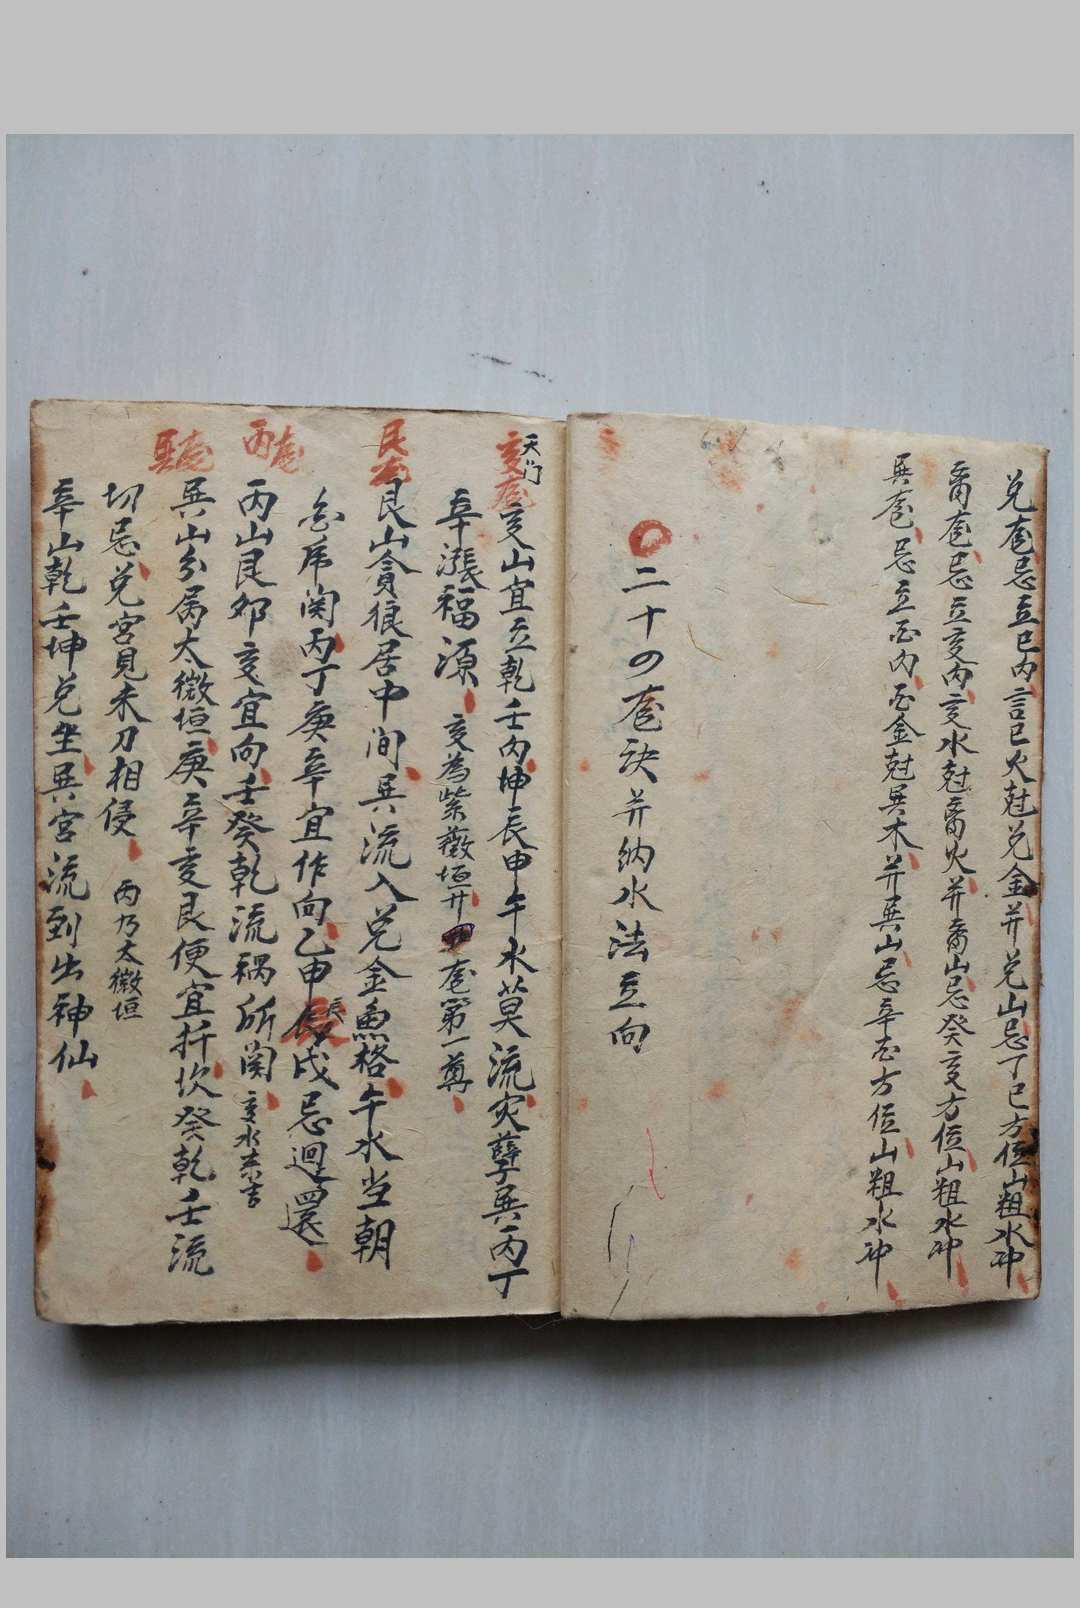 兑龙忌立巳内言巳火尅兑金并兑山忌丁巳方位山粗水冲
离龙忌立亥内亥水尅离火并离山忌癸亥方位山粗水冲
巽龙忌立酉内酉金尅巽木并巽山忌辛酉方位山粗水冲
二十四龙诀并纳水法立向
亥龙
天门
亥山宜立乾壬内坤辰申午水莫流灾孽巽丙丁
辛漲福源 亥為紫薇垣廿四龙第一尊
艮龙
艮山貪狼居中间巽流入兑金魚格午水当朝
为库関丙丁庚辛宜作向乙申辰戌忌迴還
丙龙
丙山艮卯亥宜向壬癸乾流祸所関 亥水亦吉
巽龙
巽山分属太微垣庚辛亥艮便宜扦坎癸乾壬流
切忌兑宫見未刀相侵 丙乃太微垣
辛山乾壬坤兑坐巽宫流到出神仙